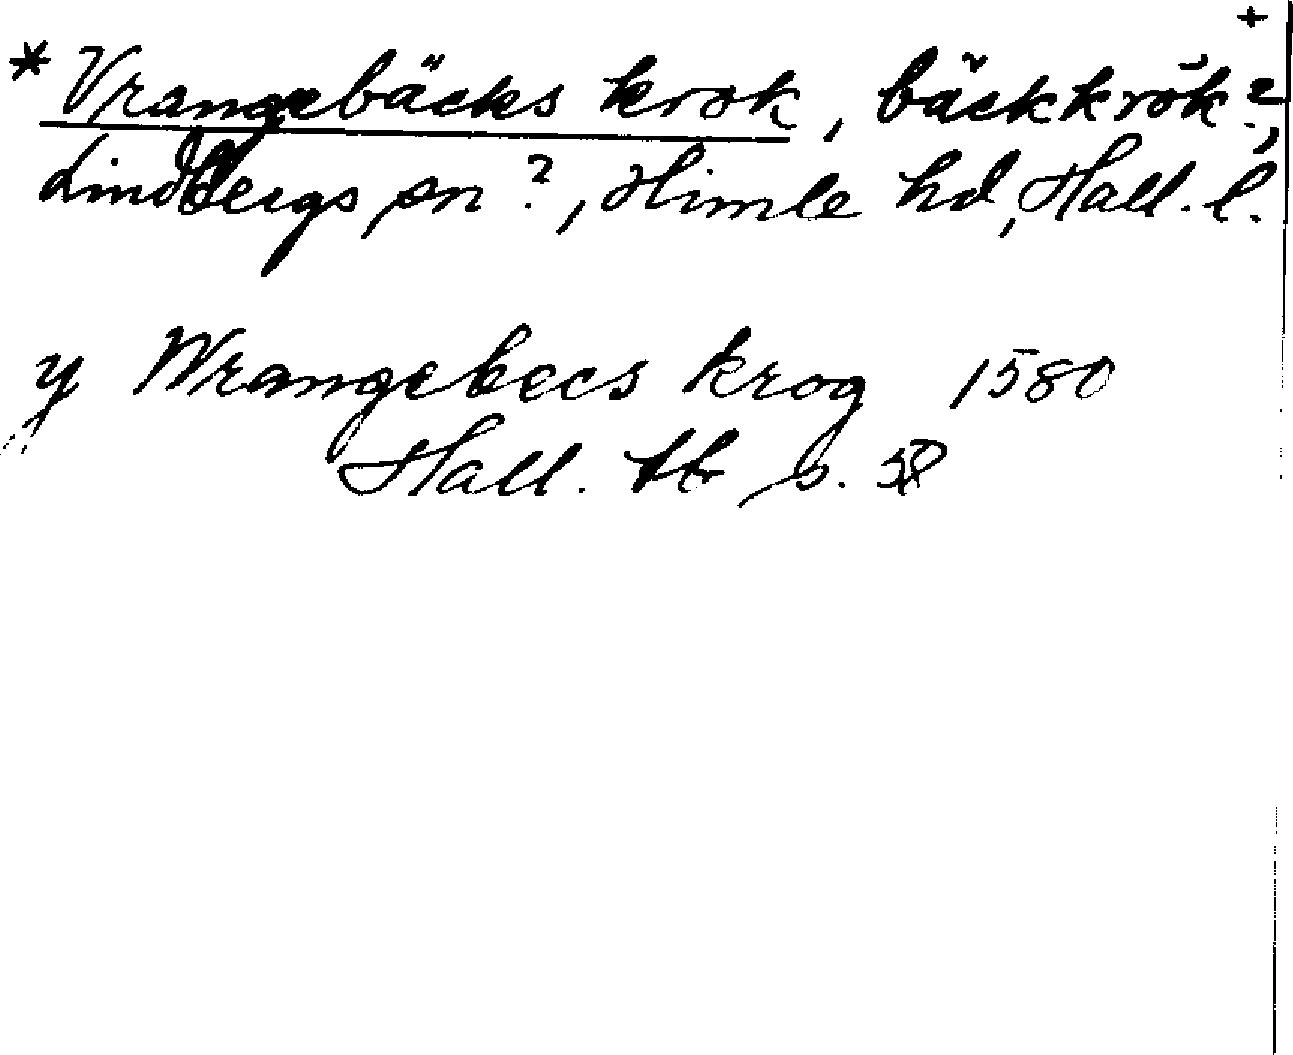 +
* Vrangebäcks krok, bäckkrök?,
Lindbergs sn?, Himle hd, Hall. l.
y Wrangebecs krog 1580
Hall. tb s. 58